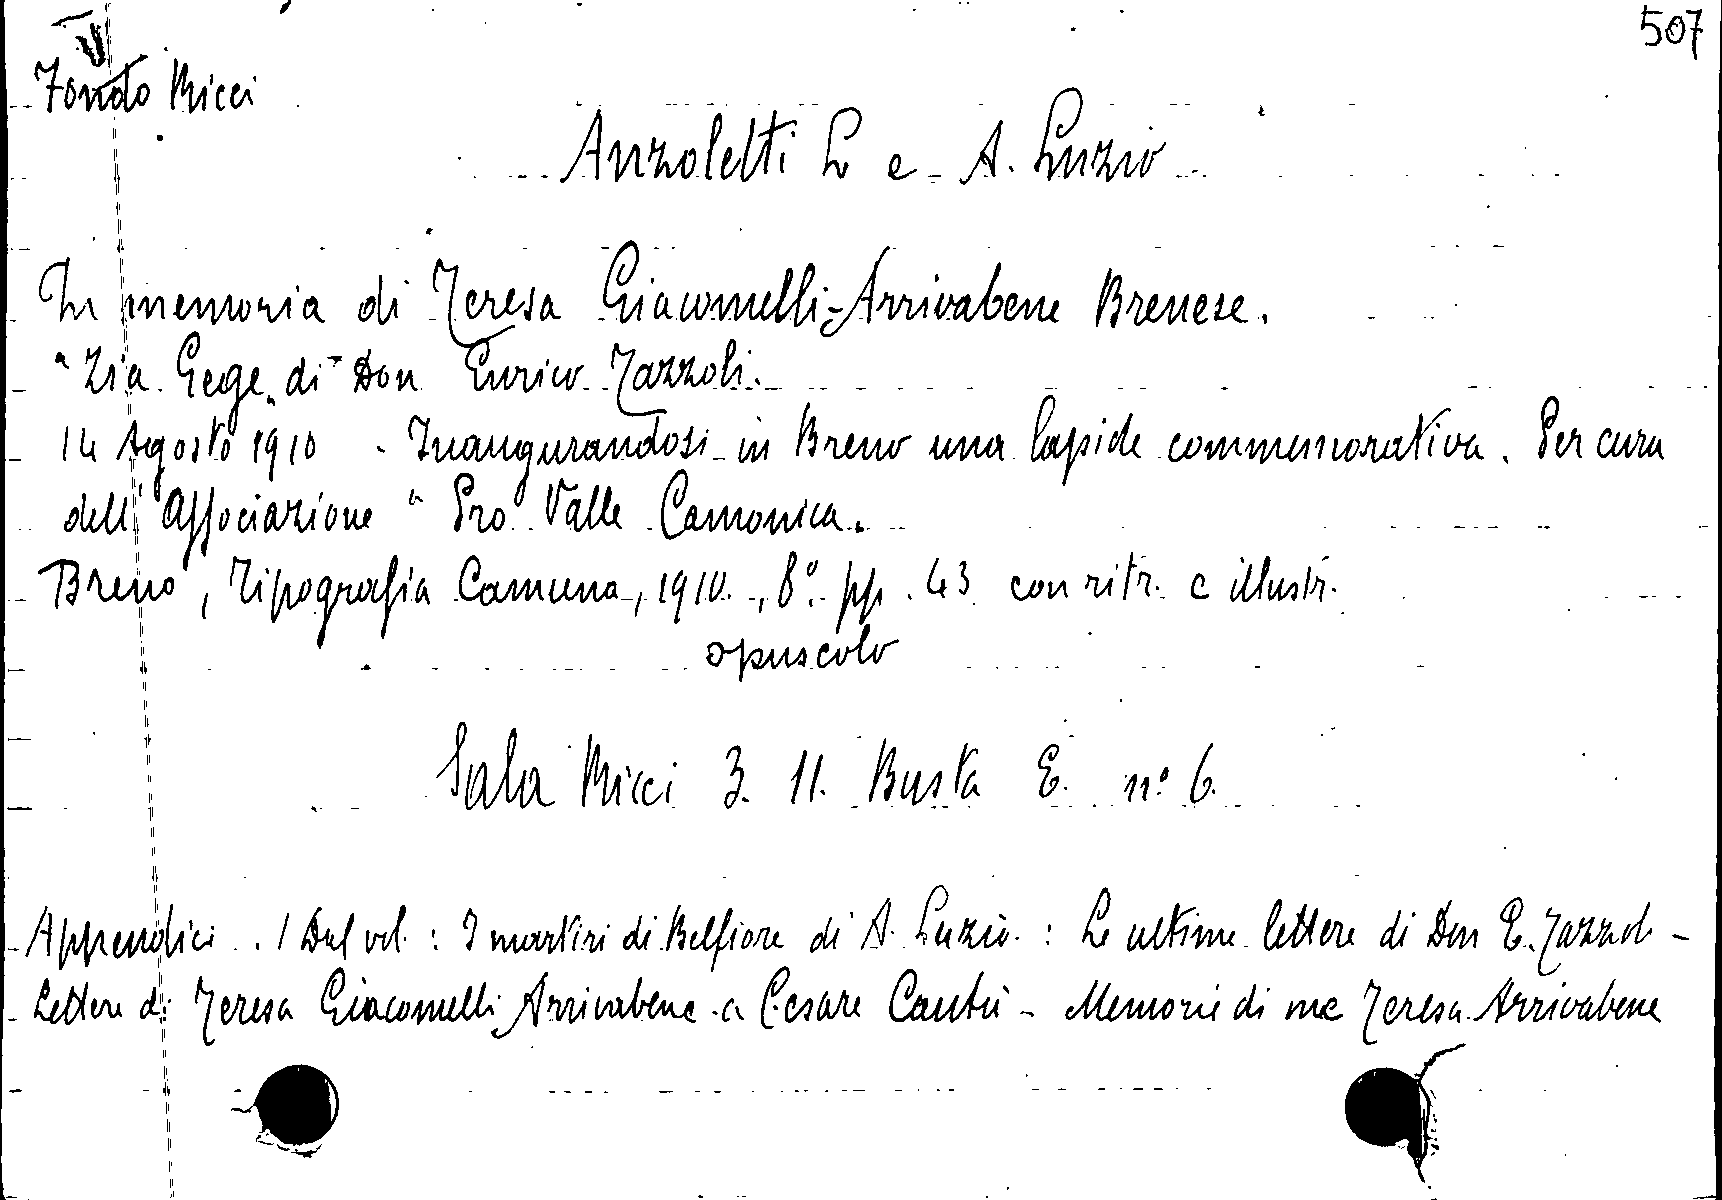 507
Fondo Ricci
Anzoletti L e A. Luzio
In memoria di Teresa Giacomelli-Arrivabene Brenese.
"Zia Gege" di Don Enrico Tazzoli.
14 Agosto 1910 - Inaugurandosi in Breno una lapide commemorativa. Per cura
dell'Associazione " Pro Valle Camonica.
Breno, Tipografia Camuna, 1910., 8°. pp. 43 con ritr. e illustr.
opuscolo
Sala Ricci 3. 11. Busta E. n° 6.
Appendici . 1 Dal vol. : I martiri di Belfiore di A. Luzio. : Le ultime lettere di Don E. Tazzoli -
Lettere di Teresa Giacomelli Arrivabene a Cesare Cantù - Memorie di me Teresa Arrivabene